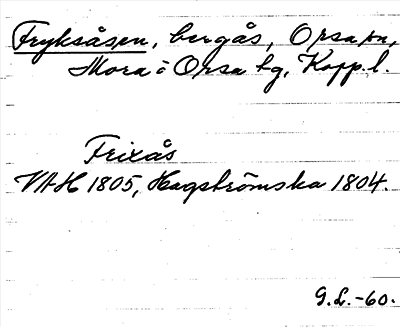 Fryksåsen, bergås, Orsa sn,
Mora o Orsa tg, Kopp. l.
Frixås
VAH 1805, Hagströmska 1804.
G.L.-60.